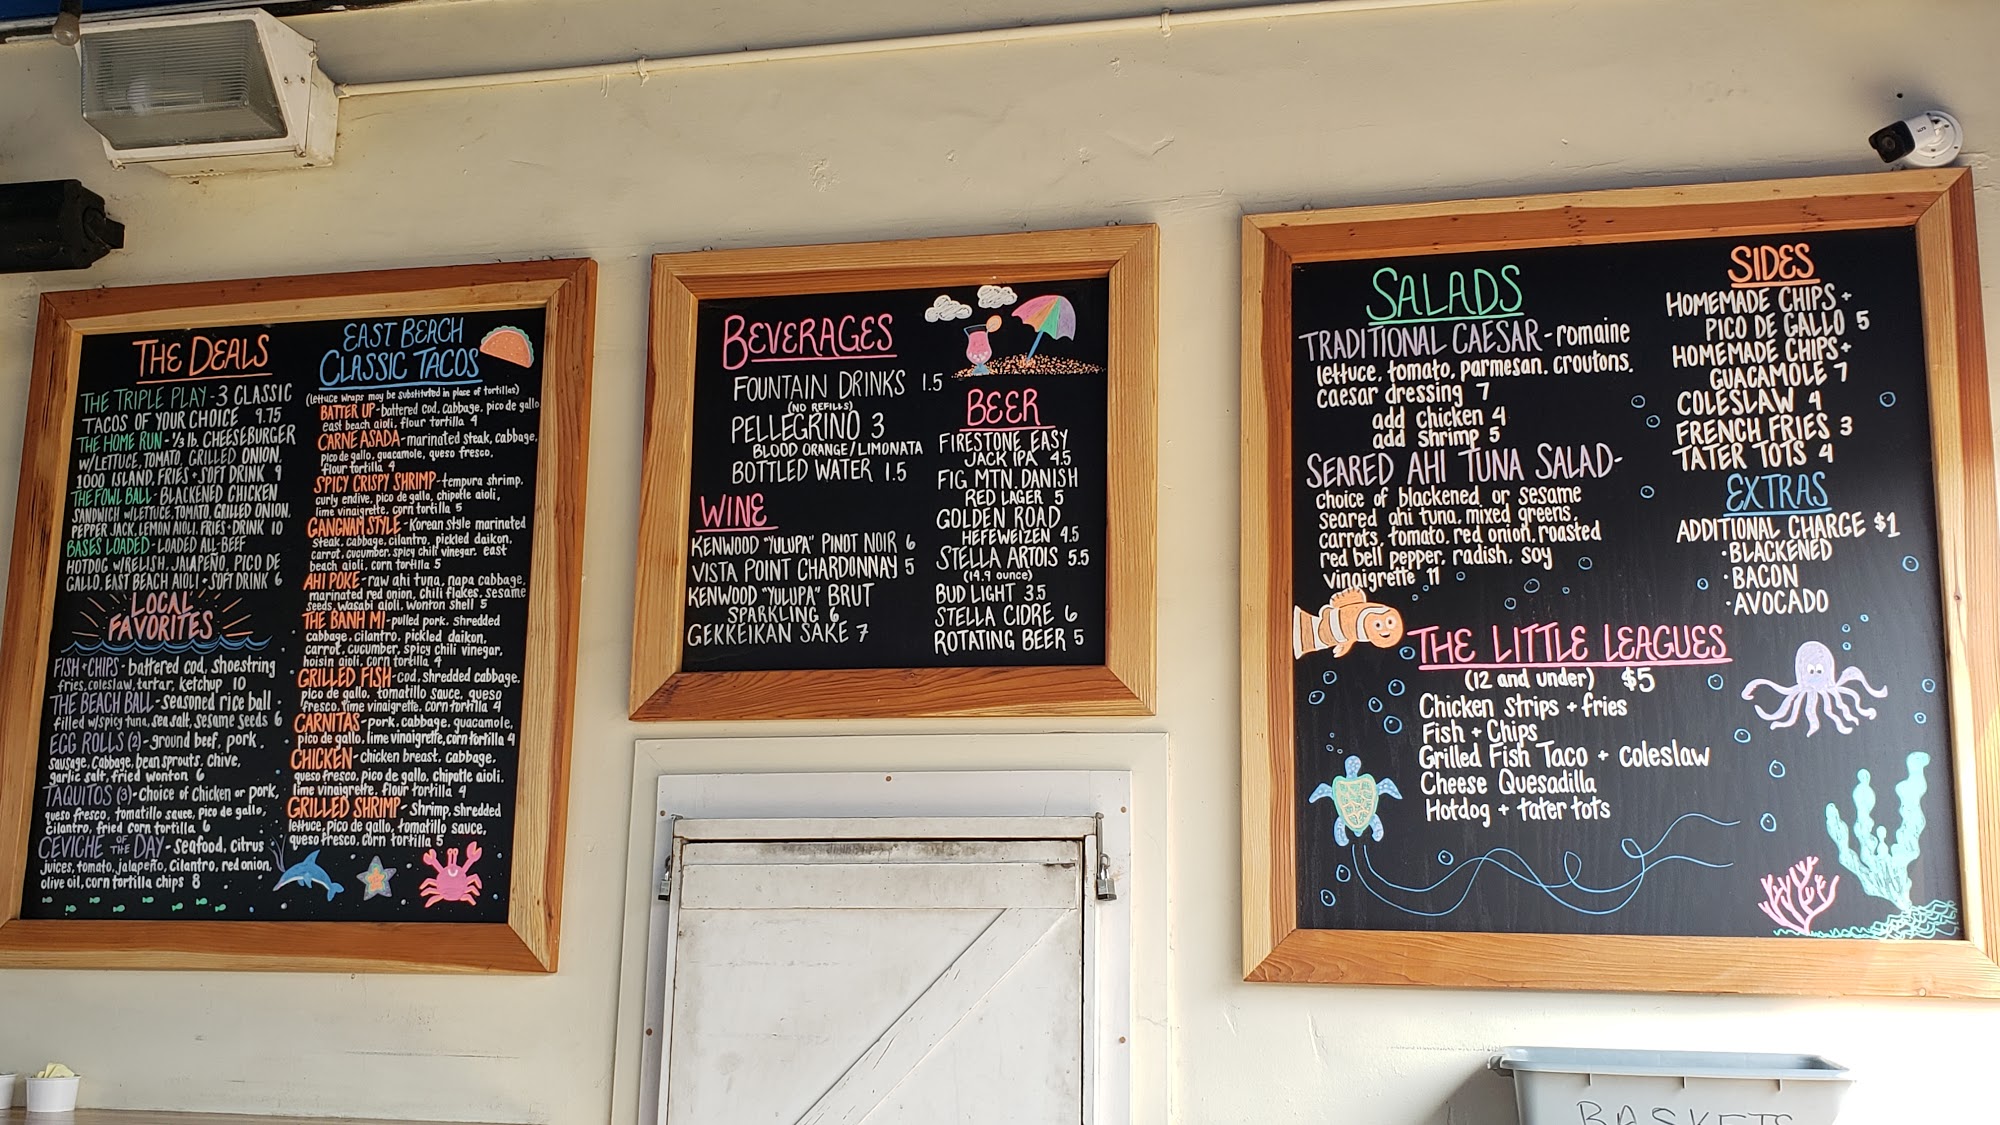 THE DEALS
THE TRIPLE PLAY - 3 CLASSIC
TACOS OF YOUR CHOICE 9.75
THE HOME RUN - 1/3 lb. CHEESEBURGER
W/LETTUCE, TOMATO, GRILLED ONION,
1000 ISLAND, FRIES + SOFT DRINK 9
THE FOWL BALL - BLACKENED CHICKEN
SANDWICH W/LETTUCE, TOMATO, GRILLED ONION,
PEPPER JACK, LEMON AIOLI, FRIES + DRINK 10
BASES LOADED - LOADED ALL-BEEF
HOTDOG W/RELISH, JALAPEÑO, PICO DE
GALLO, EAST BEACH AIOLI + SOFT DRINK 6
LOCAL
FAVORITES
FISH + CHIPS - battered cod, shoestring
fries, coleslaw, tartar, ketchup 10
THE BEACH BALL - seasoned rice ball
filled w/spicy tuna, sea salt, sesame seeds 6
EGG ROLLS (2) - ground beef, pork,
sausage, cabbage, bean sprouts, chive,
garlic salt, fried wonton 6
TAQUITOS (3) - Choice of Chicken or pork,
queso fresco, tomatillo sauce, pico de gallo,
cilantro, fried corn tortilla 6
CEVICHE OF THE DAY - seafood, citrus
juices, tomato, jalapeño, cilantro, red onion,
olive oil, corn tortilla chips 8
EAST BEACH
CLASSIC TACOS
(lettuce wraps may be substituted in place of tortillas)
BATTER UP - battered cod, cabbage, pico de gallo
east beach aioli, flour tortilla 4
CARNE ASADA - marinated steak, cabbage,
pico de gallo, guacamole, queso fresco,
flour tortilla 4
SPICY CRISPY SHRIMP - tempura shrimp,
curly endive, pico de gallo, chipotle aioli,
lime vinaigrette, corn tortilla 5
GANGNAM STYLE - Korean style marinated
steak, cabbage, cilantro, pickled daikon,
carrot, cucumber, spicy chili vinegar, east
beach aioli, corn tortilla 5
AHI POKE - raw ahi tuna, napa cabbage,
marinated red onion, chili flakes, sesame
seeds, wasabi aioli, wonton shell 5
THE BANH MI - pulled pork, shredded
cabbage, cilantro, pickled daikon,
carrot, cucumber, spicy chili vinegar,
hoisin aioli, corn tortilla 4
GRILLED FISH - cod, shredded cabbage,
pico de gallo, tomatillo sauce, queso
fresco, lime vinaigrette, corn tortilla 4
CARNITAS - pork, cabbage, guacamole,
pico de gallo, lime vinaigrette, corn tortilla 4
CHICKEN - chicken breast, cabbage,
queso fresco, pico de gallo, chipotle aioli,
lime vinaigrette, flour tortilla 4
GRILLED SHRIMP - shrimp, shredded
lettuce, pico de gallo, tomatillo sauce,
queso fresco, corn tortilla 5
BEVERAGES
FOUNTAIN DRINKS 1.5
(NO REFILLS)
PELLEGRINO 3
BLOOD ORANGE/LIMONATA
BOTTLED WATER 1.5
WINE
KENWOOD "YULUPA" PINOT NOIR 6
VISTA POINT CHARDONNAY 5
KENWOOD "YULUPA" BRUT
SPARKLING 6
GEKKEIKAN SAKE 7
BEER
FIRESTONE EASY
JACK IPA 4.5
FIG MTN. DANISH
RED LAGER 5
GOLDEN ROAD
HEFEWEIZEN 4.5
STELLA ARTOIS 5.5
(14.9 ounce)
BUD LIGHT 3.5
STELLA CIDRE 6
ROTATING BEER 5
SALADS
TRADITIONAL CAESAR - romaine
lettuce, tomato, parmesan, croutons,
caesar dressing 7
add chicken 4
add shrimp 5
SEARED AHI TUNA SALAD -
choice of blackened or sesame
seared ahi tuna, mixed greens,
carrots, tomato, red onion, roasted
red bell pepper, radish, soy
vinaigrette 11
SIDES
HOMEMADE CHIPS +
PICO DE GALLO 5
HOMEMADE CHIPS +
GUACAMOLE 7
COLESLAW 4
FRENCH FRIES 3
TATER TOTS 4
EXTRAS
ADDITIONAL CHARGE $1
• BLACKENED
• BACON
• AVOCADO
THE LITTLE LEAGUES
(12 and under) $5
Chicken strips + fries
Fish + Chips
Grilled Fish Taco + coleslaw
Cheese Quesadilla
Hotdog + tater tots
BASKETS